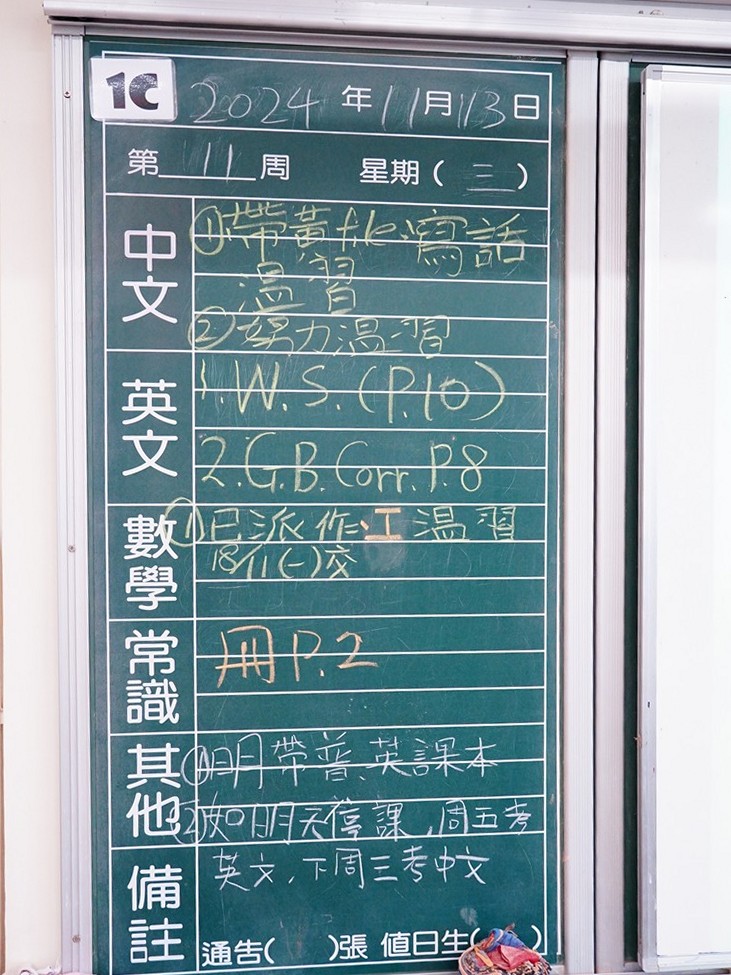 1C
2024 年 11 月 13 日
第 11 周 星期 ( 三 )
中文
①帶黃file寫話
溫習
②努力溫習
英文
1. W. S. (P.10)
2. G.B. Corr. P.8
數學
①已派作工溫習
18/11(一)交
常識
冊 P.2
其他
①明帶普、英課本
②如明天停課,周五考
備註
英文,下周三考中文
通告( )張 值日生( )